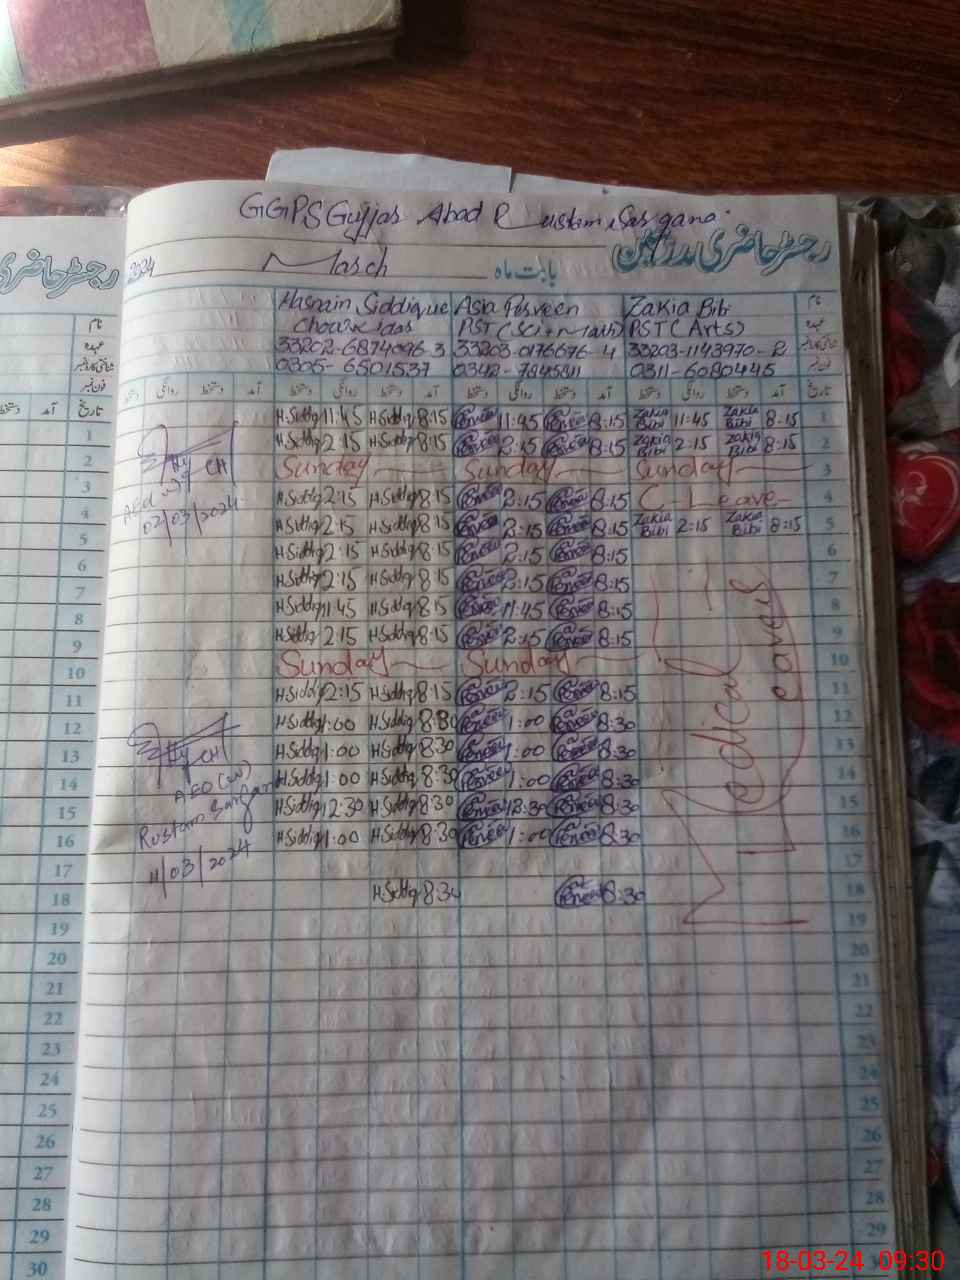 GGPS Gujjar Abad Rustam Sargana.
رجسٹر حاضری مدرسین
2024 March بابت ماہ
Hasnain Siddique Asia Parveen Zakia Bibi نام
Chowkidar PST (Sci+Math) PST (Arts) عہدہ
33202-6874096-3 33203-0176676-4 33203-1143970-2 شناختی کارڈ نمبر
0305-6501537 0311-6080445 فون نمبر
دستخط روانگی دستخط آمد دستخط روانگی دستخط آمد دستخط روانگی دستخط آمد دستخط روانگی دستخط آمد تاریخ
H.Siddiq 11:45 H.Siddiq 8:15 11:45 8:15 Zakia Bibi 11:45 Zakia Bibi 8:15 1
H.Siddiq 2:15 H.Siddiq 8:15 2:15 8:15 Zakia Bibi 2:15 Zakia Bibi 8:15 2
Sunday Sunday Sunday 3
H.Siddiq 2:15 H.Siddiq 8:15 2:15 8:15 C-Leave 4
H.Siddiq 2:15 H.Siddiq 8:15 2:15 8:15 Zakia Bibi 2:15 Zakia Bibi 8:15 5
H.Siddiq 2:15 H.Siddiq 8:15 2:15 8:15 6
H.Siddiq 2:15 H.Siddiq 8:15 2:15 8:15 7
H.Siddiq 11:45 H.Siddiq 8:15 11:45 8:15 8
H.Siddiq 2:15 H.Siddiq 8:15 2:15 8:15 9
Sunday Sunday 10
H.Siddiq 2:15 H.Siddiq 8:15 2:15 8:15 11
H.Siddiq 1:00 H.Siddiq 8:30 1:00 8:30 12
H.Siddiq 1:00 H.Siddiq 8:30 1:00 8:30 13
H.Siddiq 1:00 H.Siddiq 8:30 1:00 8:30 14
H.Siddiq 12:30 H.Siddiq 8:30 12:30 8:30 15
H.Siddiq 1:00 H.Siddiq 8:30 1:00 8:30 16
17
H.Siddiq 8:30 8:30 18
19
20
21
22
23
24
25
26
27
28
29
30
Medical Leaves
AEO (W)
02/03/2024
AEO (W)
Rustam Sargana
11/03/2024
رجسٹر حاضری
نام
عہدہ
شناختی کارڈ نمبر
فون نمبر
دستخط آمد تاریخ
1
2
3
4
5
6
7
8
9
10
11
12
13
14
15
16
17
18
19
20
21
22
23
24
25
26
27
28
29
30
18-03-24 09:30